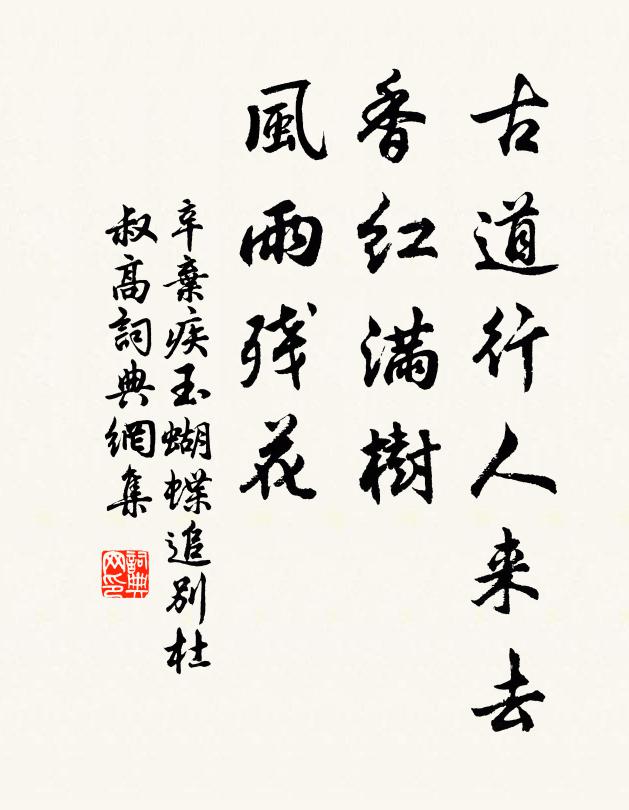 古道行人来去
香红满樹
風雨残花
辛棄疾玉蝴蝶追别杜
叔高詞典網集
詞典網印